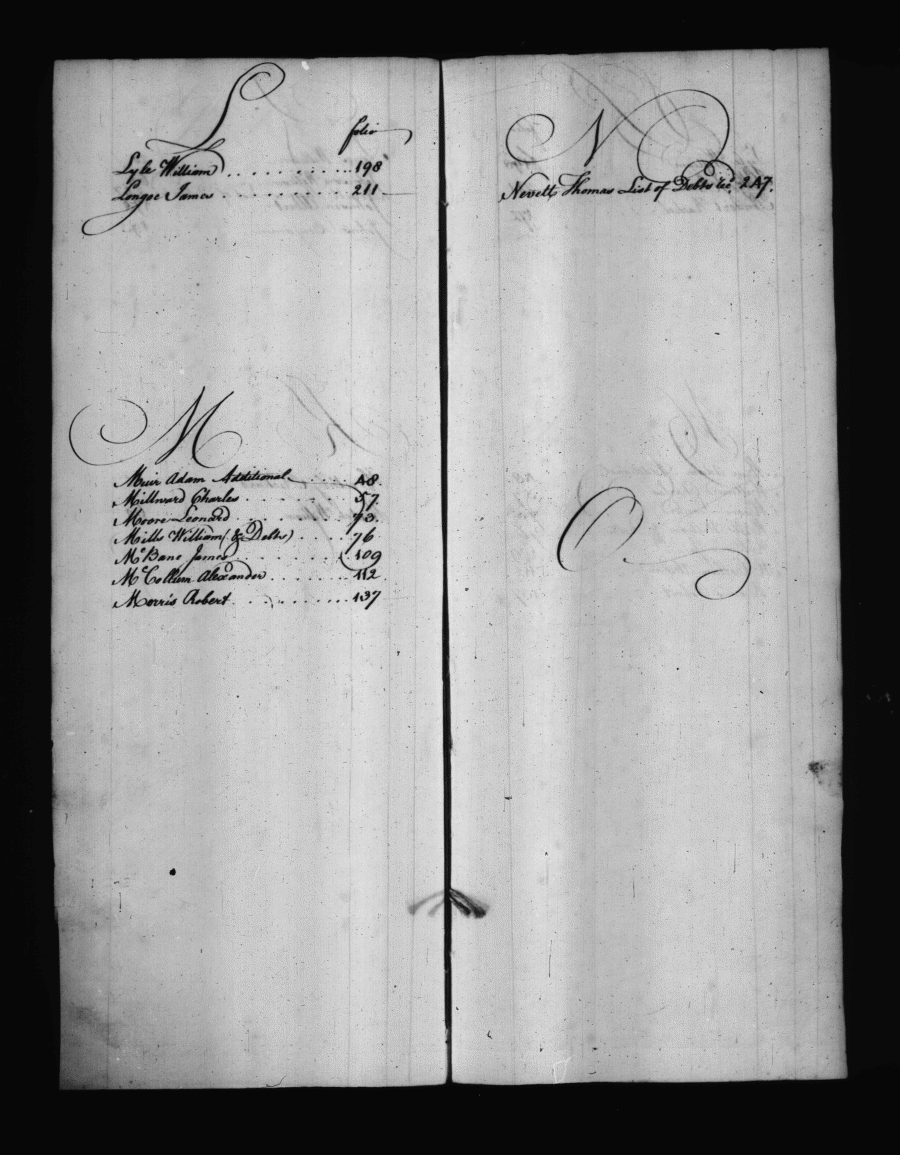 L
folio
Lyle William . . . . . . . . . . 198
Longoe James . . . . . . . . . . 211
M
Muir Adam Additional . . . . 48
Millward Charles . . . . . . . . 57
Moore Leonard . . . . . . . . . 73
Mills William (& Debts) . . . . 76
McBane James . . . . . . . . . 109
McCollum Alexander . . . . . . . 112
Morris Robert . . . . . . . . . . 137
N
Nevett Thomas List of Debts &c. 247.
O